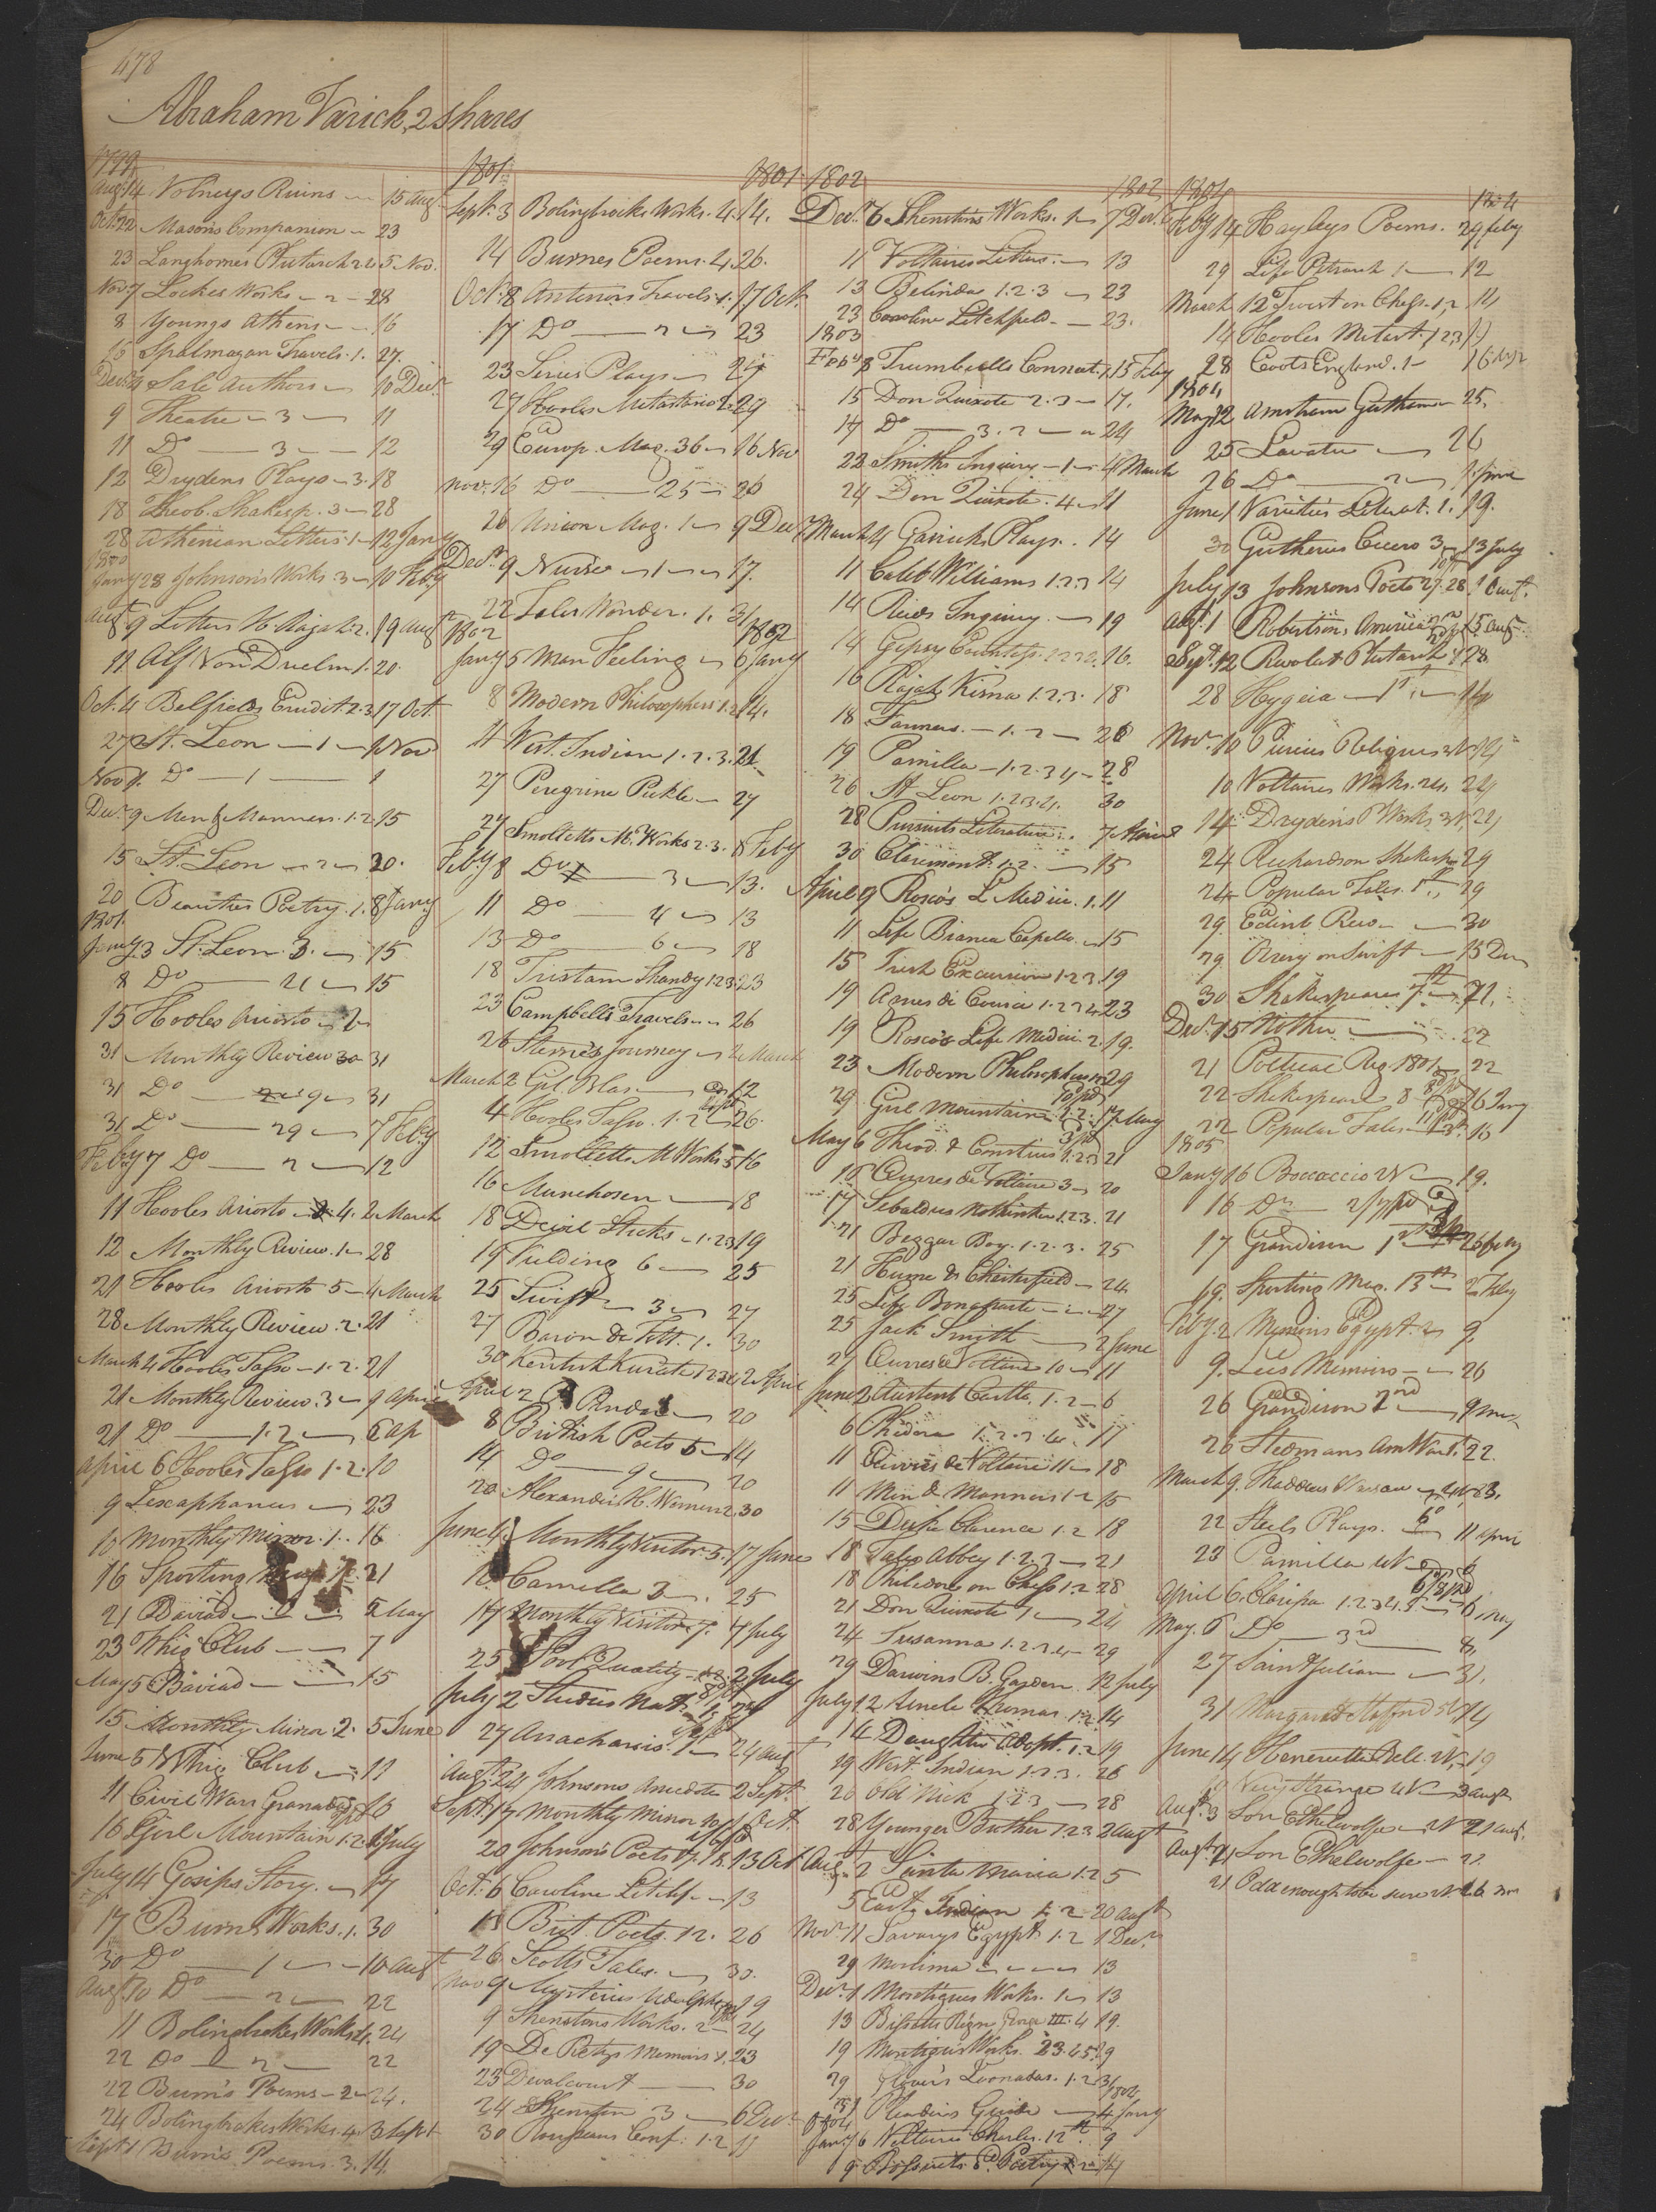 478
Abraham Varick, 2 shares
1799
Augt 14 Volneys Ruins 15 Augt
Oct. 22 Masons Companion 23
23 Langhornes Plutarch 2 5 Nov.
Nov 7 Lockes Works 2 28
8 Youngs Athens 16
16 Travels. 1. 27.
Decr 4 Authors 10 Decr
9 Theatre 3 11
11 Do 3 12
12 Drydens Plays 3. 18
18 Theob. Shakesp. 3 28
28 Athenian Letters 1 12 Jany
1800
Jany 28 Johnson's Works 3 10 Feby
Augt 9 Letters H. Rajah 2. 19 Augt
19 Alf Von Duelm 1. 20.
Oct. 4 Belfields 2.3. 17 Oct.
27 St. Leon 1 1 Nov
Nov 1. Do 1 1
Decr 9 Men & Manners. 1.2. 15
15 St. Leon 2 20.
20 Beauties Poetry. 1. 8 Jany
1801.
Jany 3 St. Leon. 3. 15
8 Do 4 15
15 Hooles Ariosto
31 Monthly Review 30 31
31 Do 31
31 Do 29 7 Feby
Feby 7 Do 2 12
11 Hooles Ariosto 4. 2 March
12 Monthly Review. 1 28
21 Hooles Ariosto 5 4 March
28 Monthly Review. 2. 21
March 4 Hooles Tasso 1. 2. 21
21 Monthly Review. 3 9 April
21 Do 1.2 6 Ap
April 6 Hooles Tasso 1.2. 10
9 Lexaphanes 23
10 Monthly Mirror. 1. 16
16 Sporting 21
21 Baviad 5 May
23 Whig Club 7
May 5 Baviad 15
15 Monthly Mirror 2. 5 June
June 5 Whig Club 11
11 Civil Wars Granada 16
16 Girl Mountain 1.2. July
July 14 Gosips Story. 17
17 Burns Works. 1. 30
30 Do 1 10 Augt
Augt 10 Do 2 22
11 Bolingbrokes Works 4. 24
22 Do 2 22
22 Burn's Poems 2 24.
24 Bolingbrokes Works. 4. 3 Sept
Sept 1 Burns Poems. 3. 14.
1801 1801
Sept. 3 Bolingbrocks Works. 4. 14.
14 Burnes Poems. 4. 26.
Oct. 8 Antenors Travels 1. 17 Oct.
17 Do 2 23
23 Plays 24
27 Hooles Metastasio 2. 29
29 Europ. Mag. 36 16 Nov
Nov. 16 Do 25 26
26 Union Mag. 1 9 Decr
Decr 9 1 17.
22 Tales Wonder. 1. 31
1802 1802
Jany 5 Man Feeling 6 Jany
8 Modern Philosophers 1.2. 14.
11 West. Indian 1.2.3. 21
27 Peregrine Pickle 27
27 Smolletts M. Works 2.3. 8 Feby
Feby 8 Do 3 13.
11 Do 4 13
13 Do 6 18
18 Tristam Shandy 1.2.3. 23
23 Campbells Travels 26
26 Sterne's Journey 2 March
March 2 Gil Blas 12
4 Hooles Tasso. 1.2 26.
12 Smolletts M Works 5 16
16 Munchosen 18
18 Devil Sticks 1.2.3 19
19 Fielding 6 25
25 Swift 3 27
27 Baron de Tott. 1. 30
30 Kentish Kurate 1234 2 April
April 2 P. Pindar 20
8 British Poets 5 14
14 Do 9 20
20 Alexanders H. Women 2. 30
June 4. Monthly Visitor. 5. 17 June
16 Camella 3 25
17 Monthly Visitor 7. 7 July
25 Quality 2 July
July 2 Studies Nat. 1. 27
27 Anacharsis. 1 24 Augt
Augt 24 Johnsons Anecdotes 2 Sept.
Sept. 17 Monthly Mirror 10 1 Oct.
20 Johnson's Poets 13 Oct
Oct. 6 Caroline Litchf. 13
13 Brit Poets. 12. 26
26 Scotts Tales. 30.
Nov 9 Mysteries Udolpho 19
9 Shenstons Works. 2 24
19 De Retz Memoirs 1. 23
23 Devalcourt 30
24 Shenston 3 6 Decr
30 Rouseaus Conf. 1.2 11
1802 1802
Decr 6 Shenston's Works. 1 7 Decr
11 Voltaires Letters. 13
13 Belinda 1.2.3 23
23 Caroline Litchfield. 23.
1803
Feby 8 Trumbulls Connect. 1. 15 Feby
15 Don Quixote 2.3 17.
17 Do 3.2 24
22 Smiths Inquiry 1 4 March
24 Don Quixote. 4 11
March 4 Garricks Plays. 14
11 Caleb Williams 1.2.3 14
14 Reids Inquiry. 19
14 Gipsey Countess. 1.2.3. 16.
16 Rajah Kisna 1.2.3. 18
18 Farmers. 1.2 26
19 Pamilla 1.2.3.4 28
26 St Leon 1.2.3.4. 30
28 Pursuits Literature. 7 April
30 Claremont. 1.2. 15
April 9 Rosco's L. Medici. 1. 11
11 Life Bianca Capello. 15
15 Irish Excursion 1.2.3. 19
19 Agnes di Courci 1.2.3.4 23
19 Rosco's Life Medici. 2. 19.
23 Modern Philosophers 29
29 Girl Mountain 1.2. 17 May
May 6 Theod. & Constius 1.2.3 21
16 Œuvres de Voltaire 3 20
17 Sebaldus Nothinker 1.2.3. 21
21 Beggar Boy. 1.2.3. 25
21 Hume & Chesterfield 24
25 Life Bonaparte 27
25 Jack Smith 2 June
27 Œuvres de Voltaire 10 11
June 2 Castle. 1.2 6
6 Phedora 1.2.3.4. 17
11 Œuvres de Voltaire 11 18
11 Men & Manners 1.2 15
15 Duke Clarence 1.2 18
18 Tales Abbey 1.2.3 21
18 Philidore on Chess 1.2 28
21 Don Quixote 1 24
24 Susanna 1.2.3.4 29
29 Darwins B. Garden 12 July
July 12 Uncle Thomas. 1.2. 14
14 Daughter Adopt. 1.2 19
19 West Indian 1.2.3. 26
20 Old Nick 1.2.3 28
28 Younger Brother 1.2.3 2 Augt
Augt 2 Santa Maria 1.2 5
5 East Indian 1.2 20 Augt
Novr 11 Savarys Egypt 1.2 1 Decr
29 13
Decr 1 Montagues Works. 1 13
13 Bissetts Reign George III. 4 19.
19 Montagues Works. 2.3.4.5 29
29 Glovers Leonadas. 1.2 31
1804
31 Guide 4 Jany
1804
Jany 6 Voltaires Charles. 12th 9
9 Bossuets Poetry 14
1804 1804
Feby 14 Hayleys Poems. 29 Feby
29 Life Petrarch 1 12
March 12 Twist on Chess. 1.2 14
14 Hooles Metast. 1.2.3
28 Coots England. 1 16 Apr
1804
May 12 25.
25 Lavater 26
26 Do 2 1 June
June 1 Varieties Literat. 1. 19.
30 Gutheries Cicero 3 13 July
July 13 Johnsons Poets 27.28 1 Augt.
Augt. 1 Robertsons America 15 Augt
Sept. 12 Revolut Plutarch 28
28 Hygeia 1st 14
Nov. 10 Percies Reliques 14
10 Voltaires Works. 24. 24
14 Drydens Works, 24
24 Richardson Shakesp 29
24 Popular Tales. 1st 29
29 Edinb Revw 30
29 Orrery on Swift 15 Dec
30 Shakespeares 7th 21.
Decr. 15 Mother 22
21 Political Reg 1804 22
22 Shakespeare 8 16 Jany
22 Popular Tales 16
1805
Jany 16 Boccaccio 2V 19.
16 Do
17 Grandison 1st 26 Feby
19. Sporting Mag. 13th 2 Feby
Feby. 2 Egypt. 9
9. Lees Memoirs 26
26 Grandison 2nd 9 Mar
26 Stedmans Am War. 22.
March 9. Thaddeus Warsaw 4V 23.
22 Steels Plays. 11 April
23 Pamilla 4V 6
April 6. Clarissa 1.2.3.4.5 6 May
May. 6 Do 3rd 8
27 Saint Julian 31.
31 Margaret Stafford 5V 14
June 14 Heneretta Bell. 2V. 19
19 Very Strange 4V 3 Augt
Augt. 3 Lon Ethelwolfe 2V 21 Augt.
Augt. 21 Lon Ethelwolfe 22
21 Odd enough to be sure 2V 26